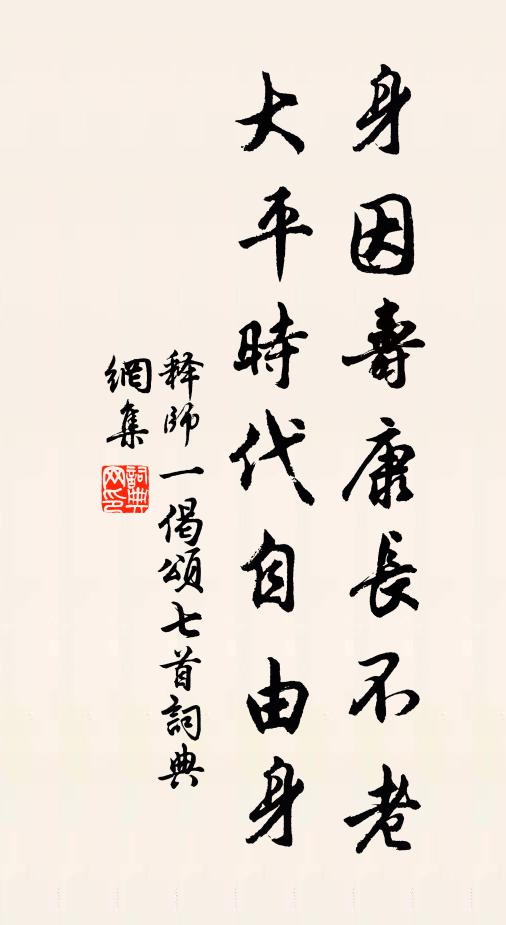 身因壽康長不老
大平時代自由身
释師一偈頌七首詞典
網集
詞典
网印